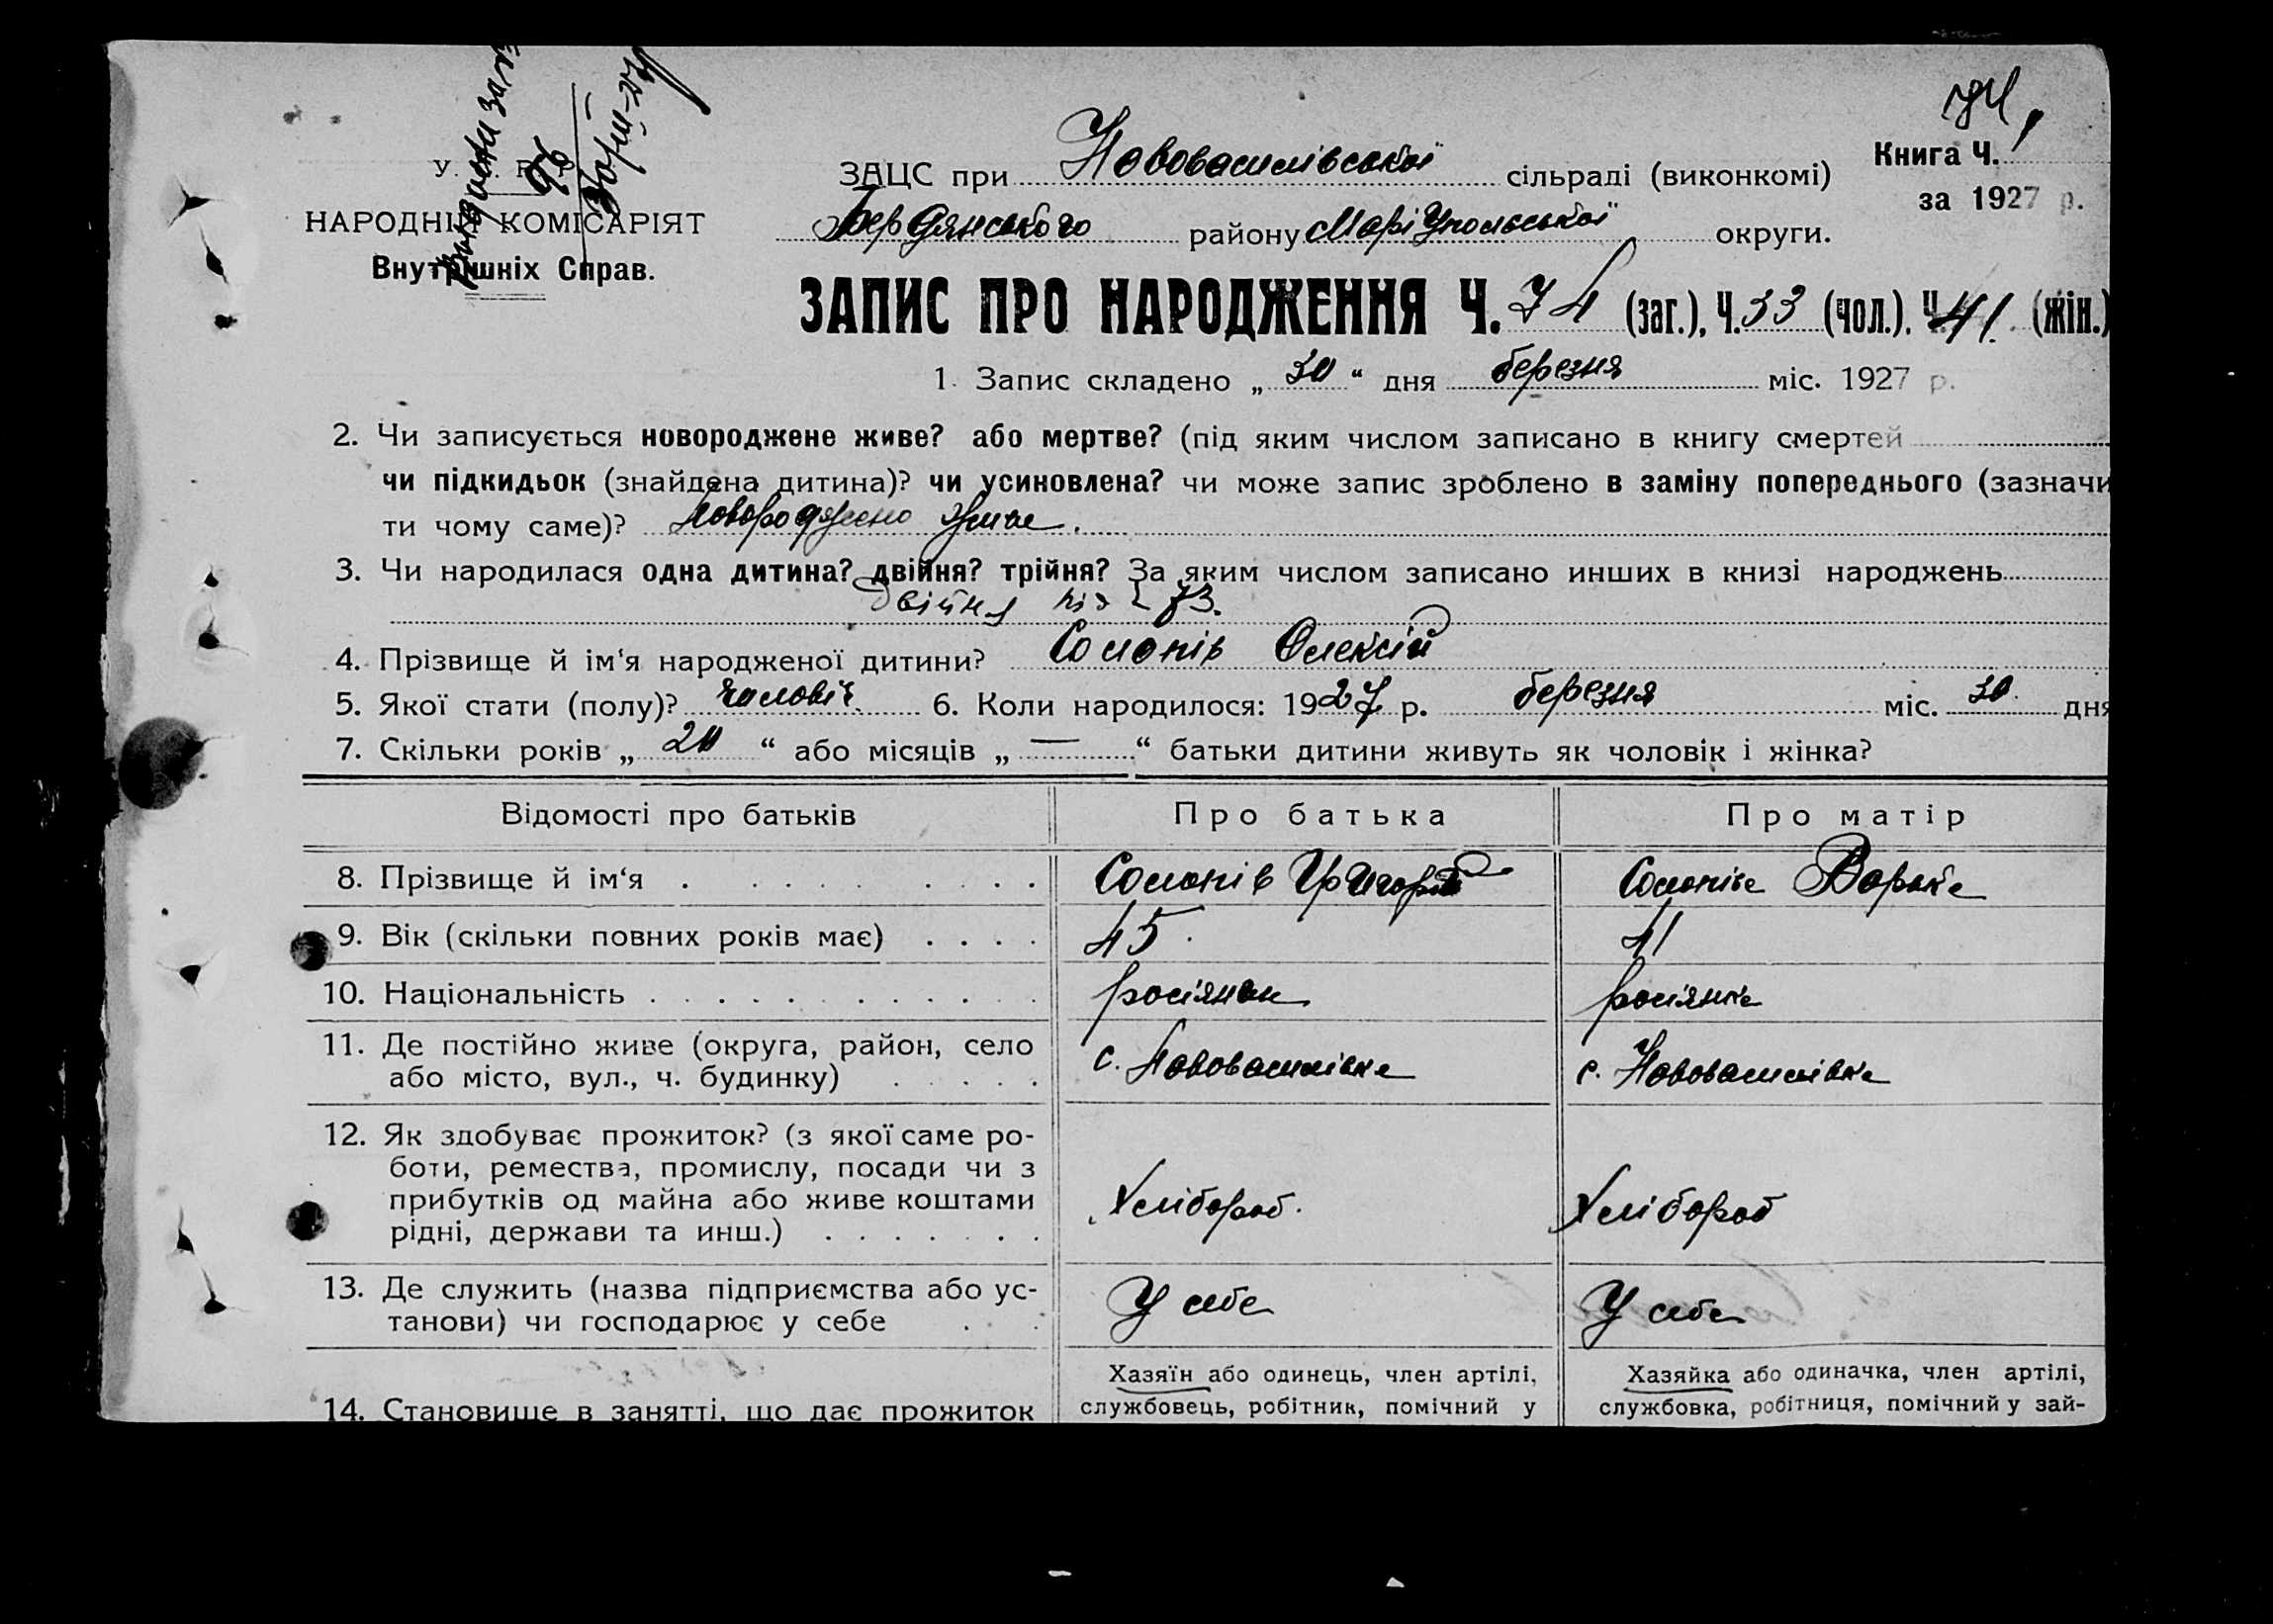 74
Книга Ч. 1
за 1927 р.
ЗАЦС при Нововасилівської сільраді (виконкомі)
Бердянського району Маріупольської округи.
У. Р.
НАРОДНІЙ КОМІСАРІЯТ
Внутрішніх Справ.
ЗАПИС ПРО НАРОДЖЕННЯ Ч. 74 (заг.), Ч. 33 (чол.), Ч. 41. (жін.)
1. Запис складено „ 30 “ дня березня міс. 1927 р.
2. Чи записується новороджене живе? або мертве? (під яким числом записано в книгу смертей
чи підкидьок (знайдена дитина)? чи усиновлена? чи може запис зроблено в заміну попереднього (зазначи
ти чому саме)? новороджено живе.
3. Чи народилася одна дитина? двійня? трійня? За яким числом записано инших в книзі народжень
двійня під 73.
4. Прізвище й ім‘я народженої дитини? Солопів Олексій
5. Якої стати (полу)? чоловіч. 6. Коли народилося: 1927 р. березня міс. 30 дня
7. Скільки років „ 20 “ або місяців „ — “ батьки дитини живуть як чоловік і жінка?
Відомості про батьків Про батька Про матір
8. Прізвище й ім‘я Солопів Григорій Солопіва Варька
9. Вік (скільки повних років має) 45. 41
10. Національність росіянин росіянка
11. Де постійно живе (округа, район, село
або місто, вул., ч. будинку) с. Нововасилівка с. Нововасилівка
12. Як здобуває прожиток? (з якої саме ро-
боти, ремества, промислу, посади чи з
прибутків од майна або живе коштами
рідні, держави та инш.) Хлібороб. Хлібороб
13. Де служить (назва підприємства або ус-
танови) чи господарює у себе У себе У себе
Хазяїн або одинець, член артілі, Хазяйка або одиначка, член артілі,
14. Становище в занятті, що дає прожиток службовець, робітник, помічний у службовка, робітниця, помічний у зай-